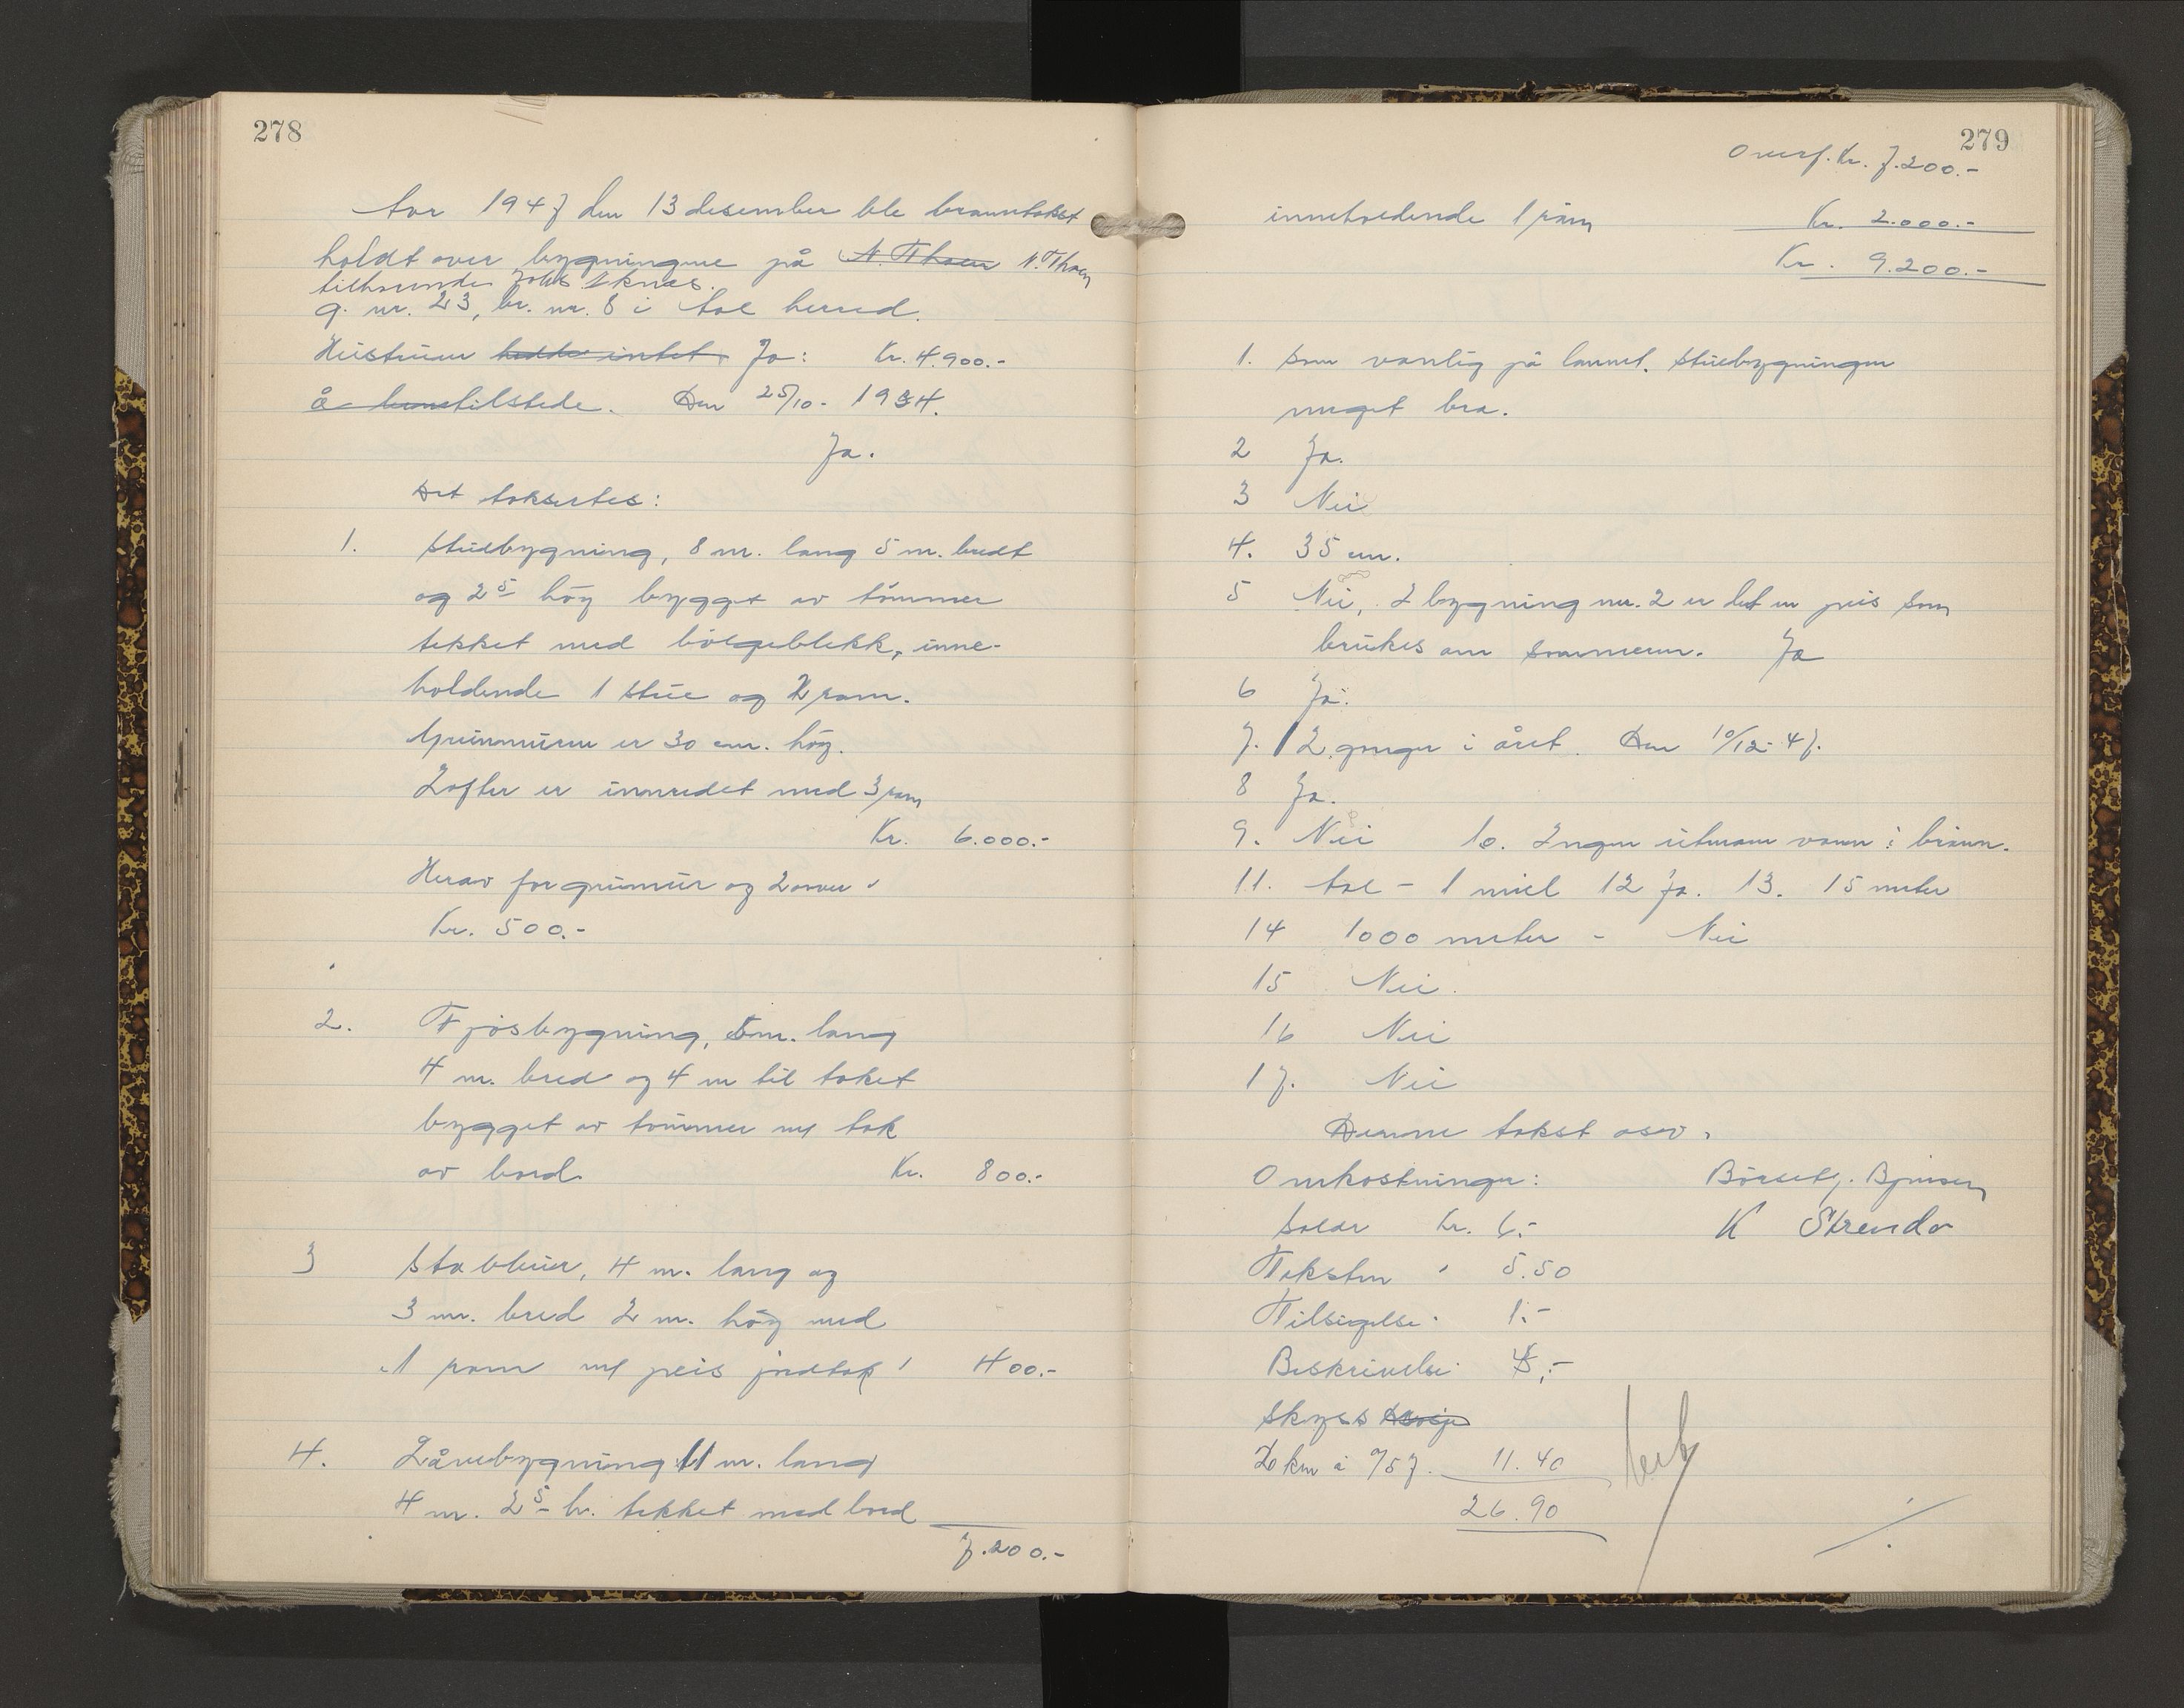 278
Aar 1947 den 13 desember ble branntakst
holdt over bygningene på N. Thoen N. Thoen
tilhørende Johs Eknes.
g. nr. 23, br. nr. 8 i Aal herred.
Hustruen hadde intet Ja: Kr. 4.900.-
å tilstede. Den 25/10- 1934.
Ja.
Det taksertes:
1. Stuebygning, 8 m. lang 5 m. bredt
og 2 5 høy bygget av tømmer
tekket med bølgeblekk, inne-
holdende 1 stue og 2 rom.
Grunnmuren er 30 cm. høy.
Loftet er innredet med 3 rom
Kr. 6.000.-
Herav for grunmur og 2 ovner
Kr. 500.-
2. Fjøsbygning, 5 m. lang
4 m. bred og 4 m til taket
bygget av tømmer m/ tak
av bord. Kr. 800.-
3 Stabbur, 4 m. lang og
3 m. bred 2 m. høy med
1 rom m/ peis jordtak " 400.-
4. Låvebygning 11 m. lang
4 m. 2 5 h. tekket med bord
7.200.-
279
Overf. Kr. 7.200.-
inneholdende 1 rom Kr. 2.000.-
Kr. 9.200.-
1. Som vanlig på lannet. Stuebygningen
meget bra.
2 Ja.
3 Nei
4. 35 cm.
5 Nei, I bygning nr. 2 er det en peis som
brukes om sommeren. Ja
6 Ja.
7. 2 ganger i året. Den 10/12-47.
8 Ja.
9. Nei 10. Ingen utenom vann i brønn.
11. Aal - 1 miel 12 Ja. 13. 15 meter
14 1000 meter - Nei
15 Nei.
16 Nei
17. Nei
Denne takst osv.
Omkostninger: Børset j. Bjønsen
Kr. 6.- K Strende
Taksten " 5.50
Tilsigelse " 1.-
Beskrivelse 
Skyss
km à 11.40
26.90